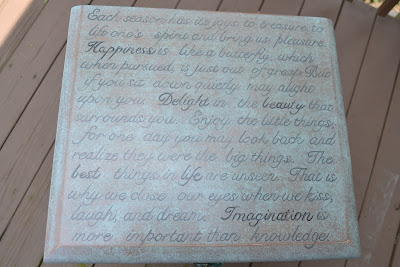 Each season has its joys to treasure to
life one's spirit and bring us pleasure.
Happiness is like a butterfly, which
when pursued, is just out of grasp. But
if you sit down quietly may alight
upon you. Delight in the beauty that
surrounds you. Enjoy the little things,
for one day you may look back and
realize they were the big things. The
best things in life are unseen. That is
why we close our eyes when we kiss,
laugh, and dream. Imagination is
more important than knowledge.